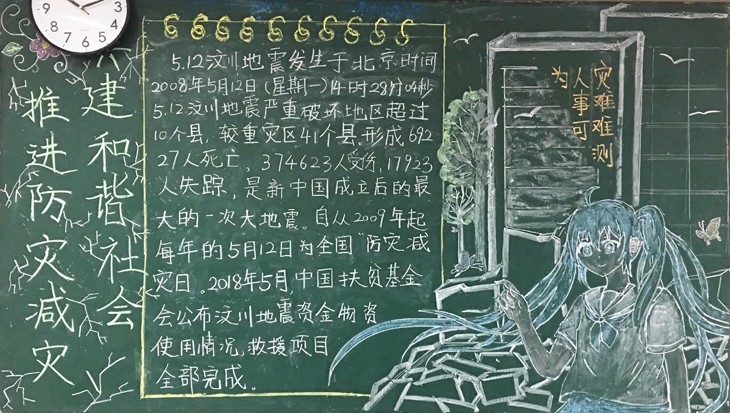 推进防灾减灾
共建和谐社会
5.12汶川地震发生于北京时间
2008年5月12日(星期一)14时28分04秒
5.12汶川地震严重破坏地区超过
10个县,较重灾区41个县.形成692
27人死亡,374623人受伤,17923
人失踪,是新中国成立后的最
大的一次大地震。自从2009年起
每年的5月12日为全国"防灾减
灾日。2018年5月,中国扶贫基金
会公布汶川地震资金物资
使用情况,救援项目
全部完成。
灾难难测
人事可
为
12
1
2
3
4
5
6
7
8
9